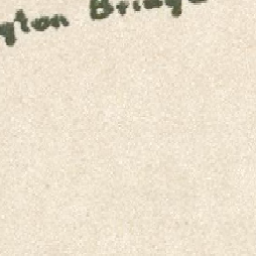 gton Bridge